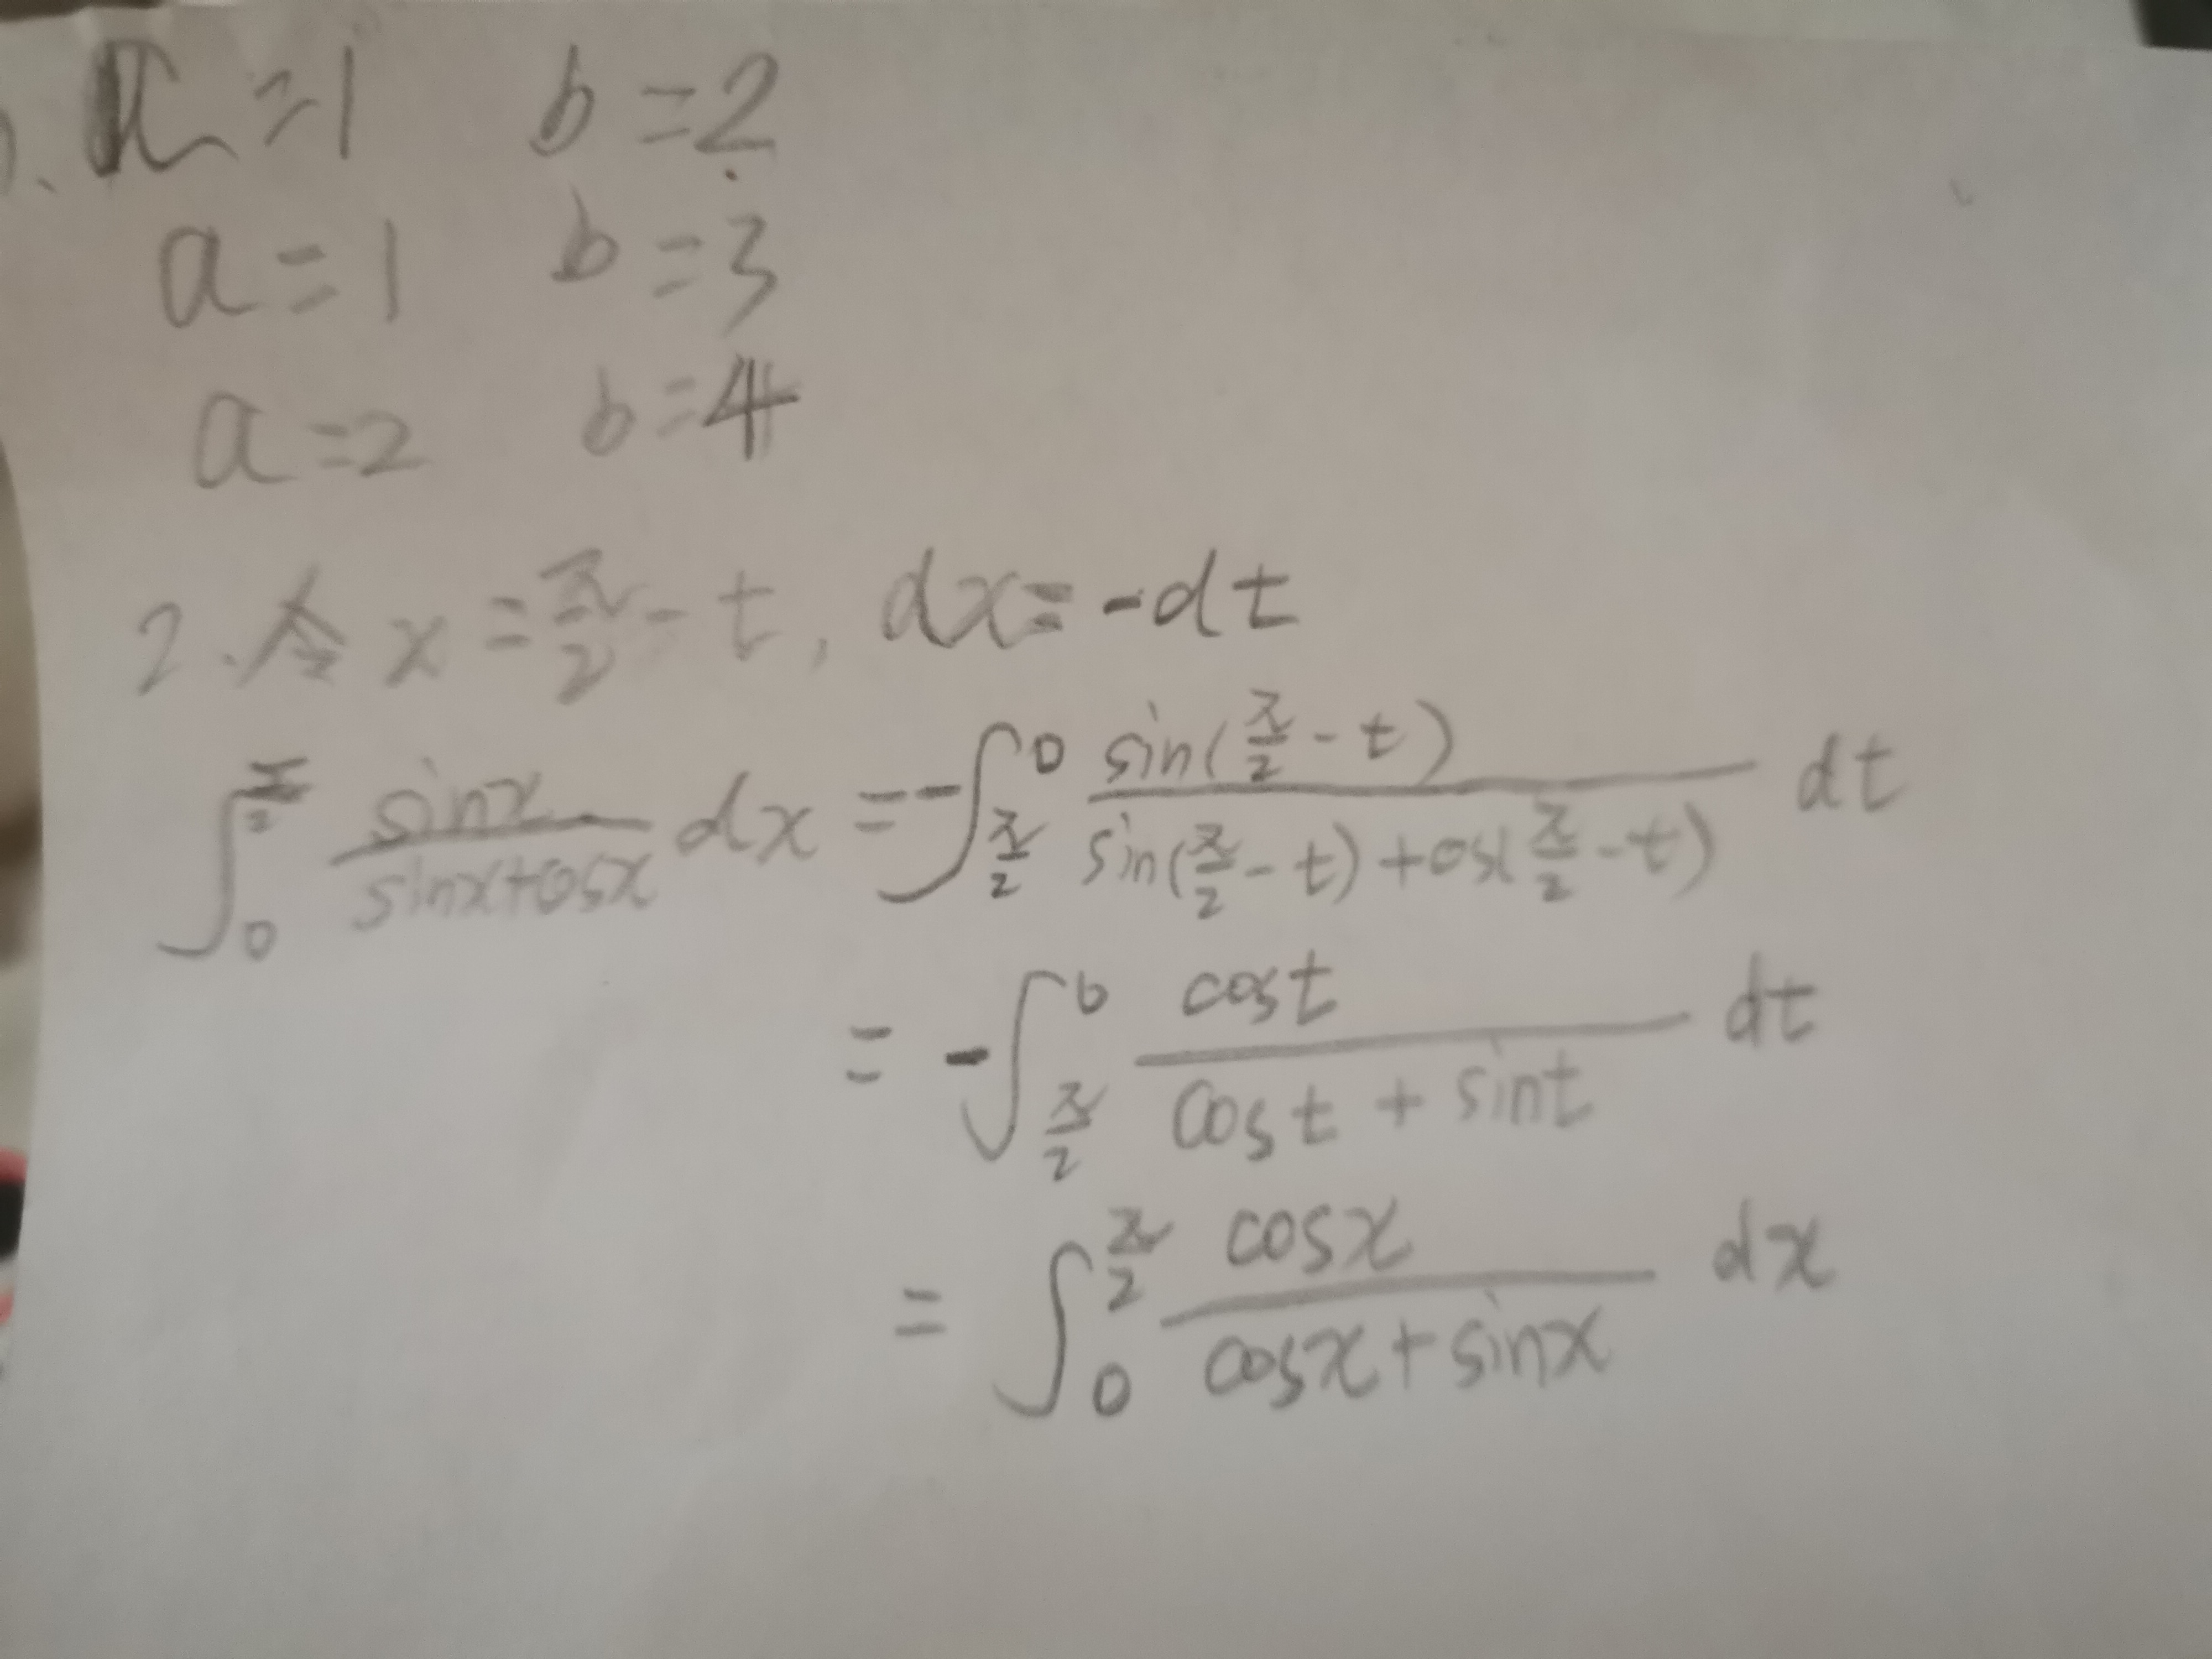 a=1 b=2
a=1 b=3
a=2 b=4
2. 令 x=π/2-t, dx=-dt
∫_0^{π/2} sinx/(sinx+cosx) dx = -∫_{π/2}^0 sin(π/2-t)/(sin(π/2-t)+cos(π/2-t)) dt
= -∫_{π/2}^0 cost/(cost+sint) dt
= ∫_0^{π/2} cosx/(cosx+sinx) dx